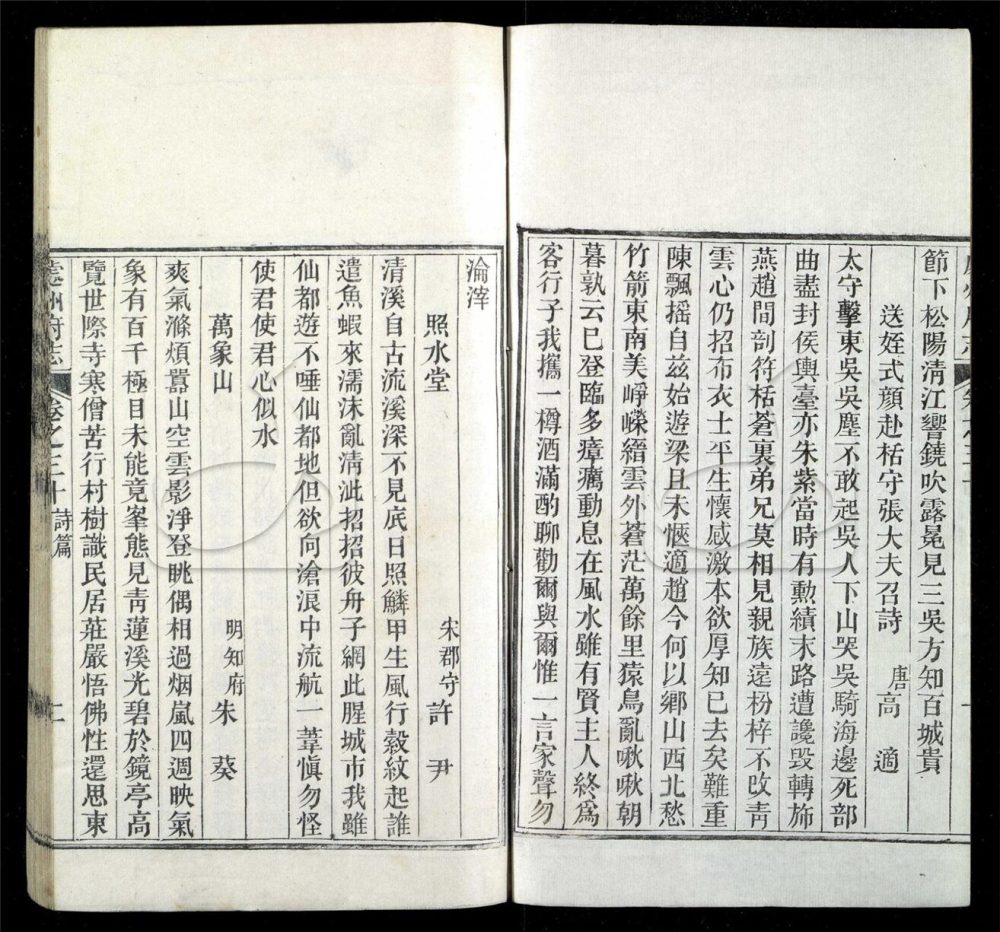 節下松陽清江響鐃吹露冕見三吳方知百城貴
送姪式顔赴栝守張大夫召詩 唐高適
太守擊東吳吳塵不敢起吳人下山哭吳騎海邊死部
曲盡封侯輿臺亦朱紫當時有勳績末路遭讒毀轉斾
燕趙間剖符栝蒼裏弟兄莫相見親族遠枌梓不改靑
雲心仍招布衣士平生懷感激本欲厚知已去矣難重
陳飄搖自兹始遊梁且未愜適趙今何以鄉山西北愁
竹箭東南美崢嶸縉雲外蒼茫萬餘里猿鳥亂啾啾朝
暮孰云已登臨多瘴癘動息在風水雖有賢主人終為
客行子我攜一樽酒滿酌聊勸爾與爾惟一言家聲勿
淪滓
照水堂 宋郡守許尹
清溪自古流溪深不見底日照鱗甲生風行縠紋起誰
遣魚蝦來濡沫亂淸泚招招彼舟子網此腥城市我雖
仙都遊不唾仙都地但欲向滄浪中流航一葦愼勿怪
使君使君心似水
萬象山 明知府朱葵
爽氣滌煩囂山空雲影淨登眺偶相過烟嵐四週映氣
象有百千極目未能竟峯態見靑蓮溪光碧於鏡亭高
覽世際寺寒僧苦行村樹識民居莊嚴悟佛性還思東
處州府志 卷之三十 詩篇 二